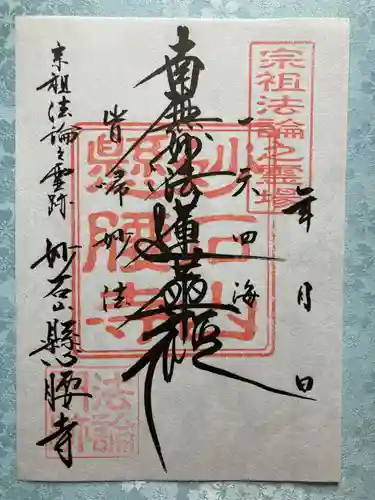 宗祖法論之霊場
年 月 日
一天四海
南無妙法蓮華経
皆帰妙法
宗祖法論之霊跡
妙石山懸腰寺
妙石山
懸腰寺
法論